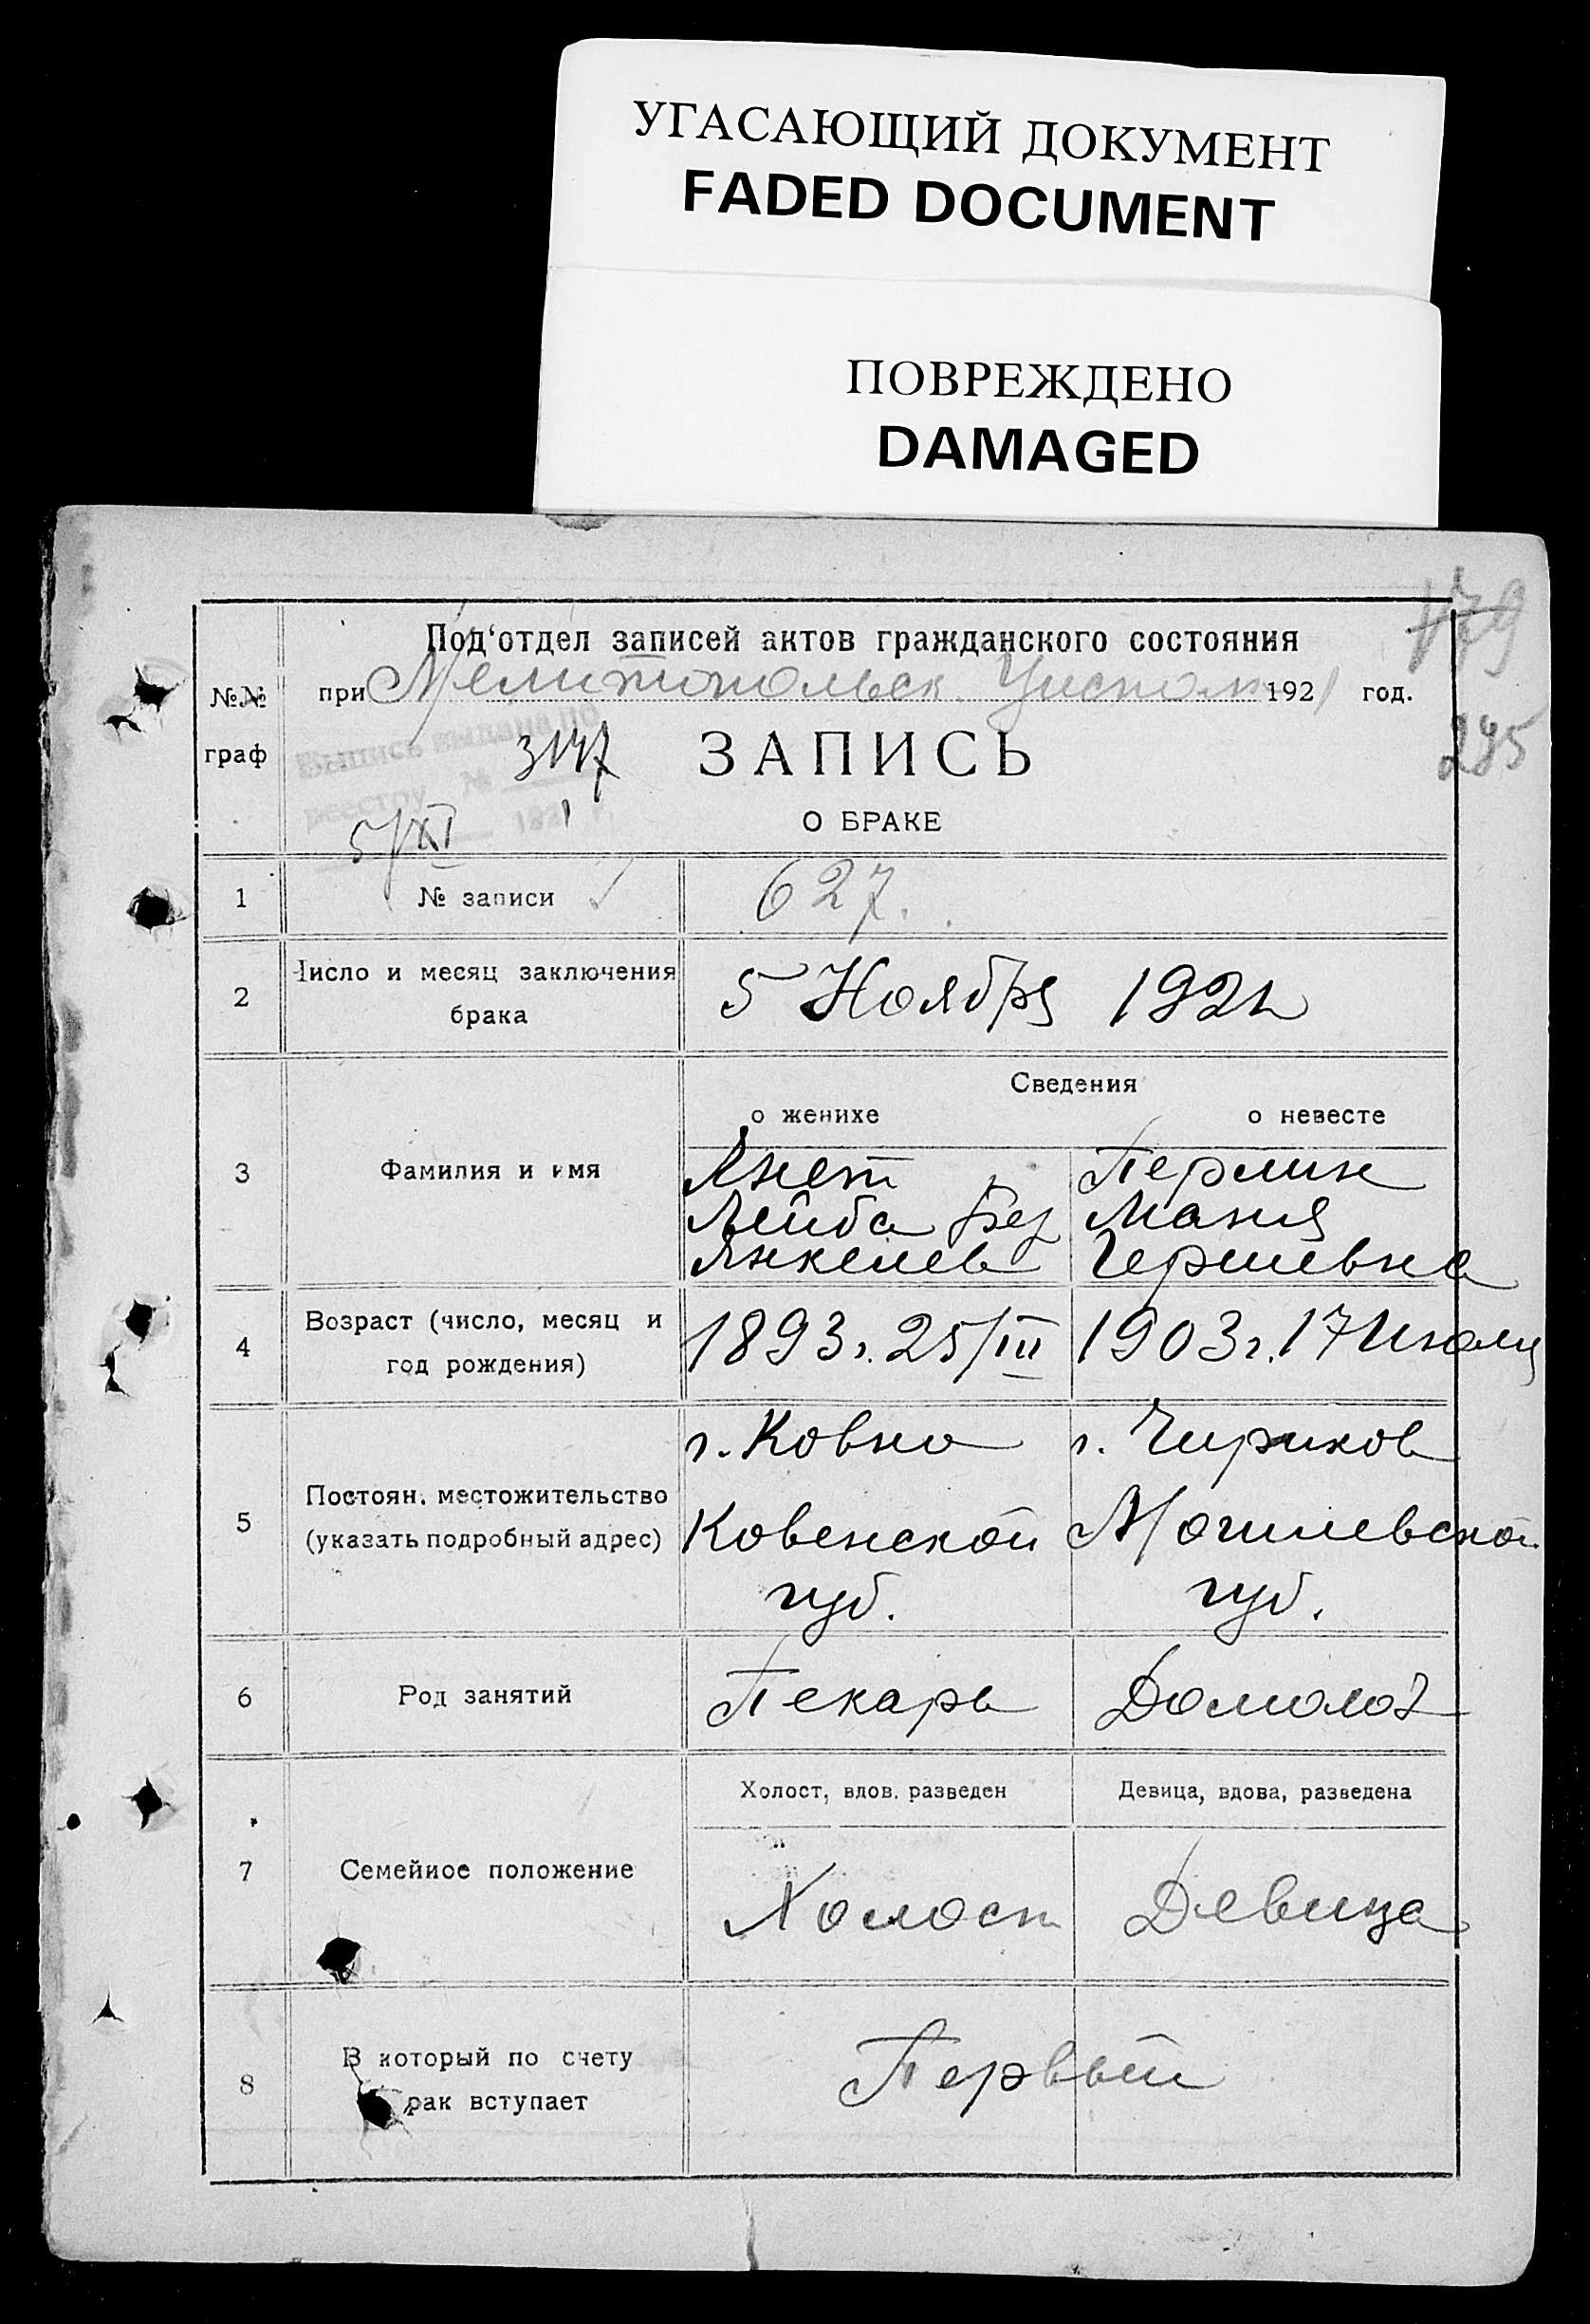 УГАСАЮЩИЙ ДОКУМЕНТ
FADED DOCUMENT
ПОВРЕЖДЕНО
DAMAGED
179
Под'отдел записей актов гражданского состояния
№№ граф
при Мелитопольск Уисполк 1921 год.
295
Выпись выдана по
реестру № 3147
5/XI 1921
ЗАПИСЬ
О БРАКЕ
1 № записи 627.
2 Число и месяц заключения брака 5 Ноября 192
3 Фамилия и имя
Сведения
о женихе о невесте
Янет Перлин
Лейба Бер Маня
Янкелев Гершевна
4 Возраст (число, месяц и год рождения) 1893г. 25/III 1903г. 17 Июля
5 Постоян. местожительство (указать подробный адрес)
г. Ковно г. Чириков
Ковенской Могилевской
губ. губ.
6 Род занятий Пекарь
7 Семейное положение
Холост, вдов, разведен Девица, вдова, разведена
Холост Девица
8 В который по счету
рак вступает
Первый